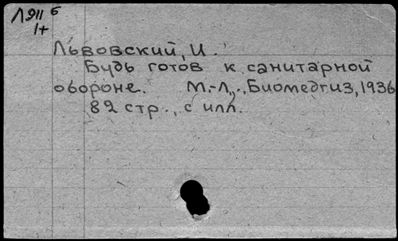 Л911 б
1+
Львовский, И.
Будь готов к санитарной
обороне. М.-Л., Биомедгиз, 1936
82 стр., с илл.